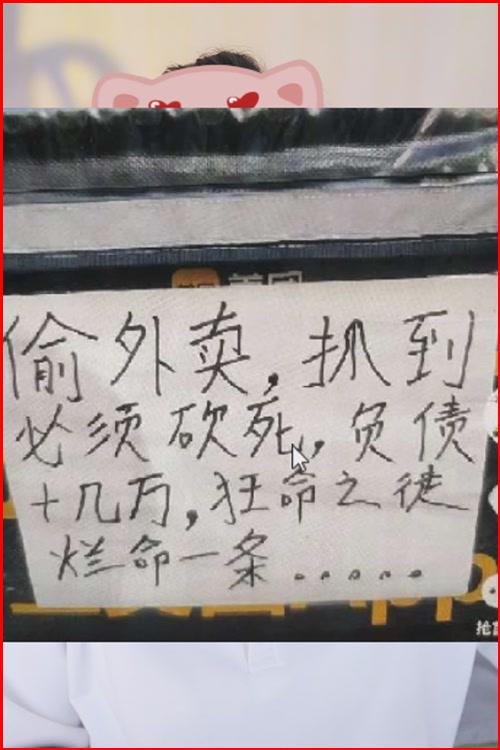 美团
偷外卖，抓到
必须砍死，负债
十几万，狂命之徒
烂命一条．．．．．